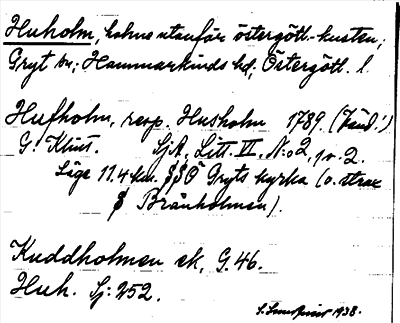 Huholm, holme utanför östergötl.-kusten;
Gryt sn; Hammarkinds hd, Östergötl. l.
Hufholm, resp. Husholm 1789. (Sänd!)
G. Klint. SjA, Litt. VI, N:o 2, p. 2.
Läge 11.4 km. SSÖ Gryts kyrka (o. strax
S Bränholmen).
Kuddholmen ek, G. 46.
Huh. Sj: 252.
1938.